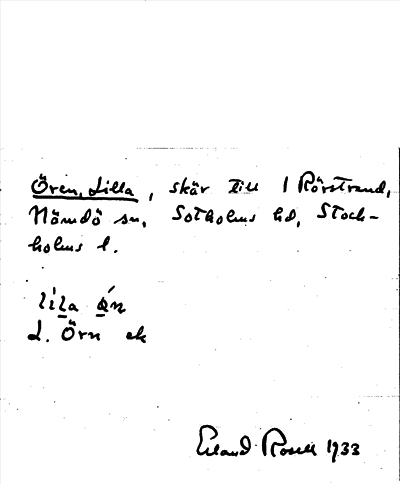 Ören, Lilla, skär till 1 Rörstrand,
Nämdö sn, Sotholms hd, Stock-
holms l.
líl̲a ǿ̲n
L. Örn ek
Erland Rosell 1933